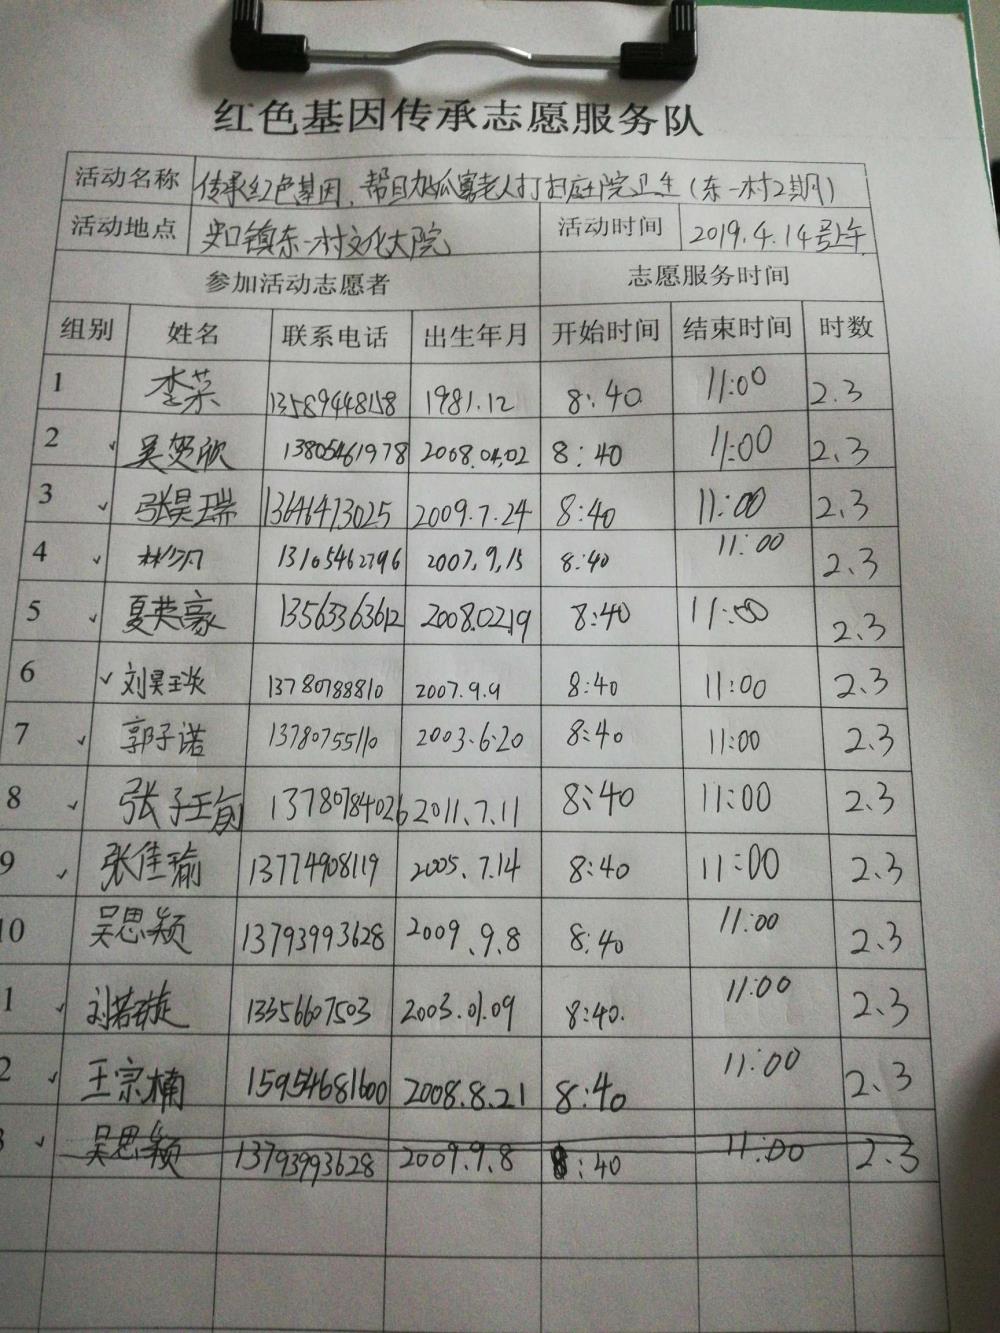 红色基因传承志愿服务队
活动名称 传承红色基因、帮助孤寡老人打扫庭院卫生(东一村2期)
活动地点 史口镇东一村文化大院 活动时间 2019.4.14号上午
参加活动志愿者 志愿服务时间
组别 姓名 联系电话 出生年月 开始时间 结束时间 时数
1 李荣 13589448158 1981.12 8:40 11:00 2.3
2 吴 欣 13805461978 2008.04.02 8:40 11:00 2.3
3 张昊瑞 13646473025 2009.7.24 8:40 11:00 2.3
4 13105462796 2007.9.15 8:40 11:00 2.3
5 夏英豪 13563363612 2008.02.19 8:40 11:00 2.3
6 刘昊琰 13780788810 2007.9.9 8:40 11:00 2.3
7 郭子诺 13780755110 2003.6.20 8:40 11:00 2.3
8 张子珣 13780784026 2011.7.11 8:40 11:00 2.3
9 张佳瑜 13774908119 2005.7.14 8:40 11:00 2.3
10 吴思颖 13793993628 2009.9.8 8:40 11:00 2.3
1 刘若璇 13356607503 2003.01.09 8:40. 11:00 2.3
2 王宗楠 15954681600 2008.8.21 8:40 11:00 2.3
3 吴思颖 13793993628 2009.9.8 8:40 11:00 2.3